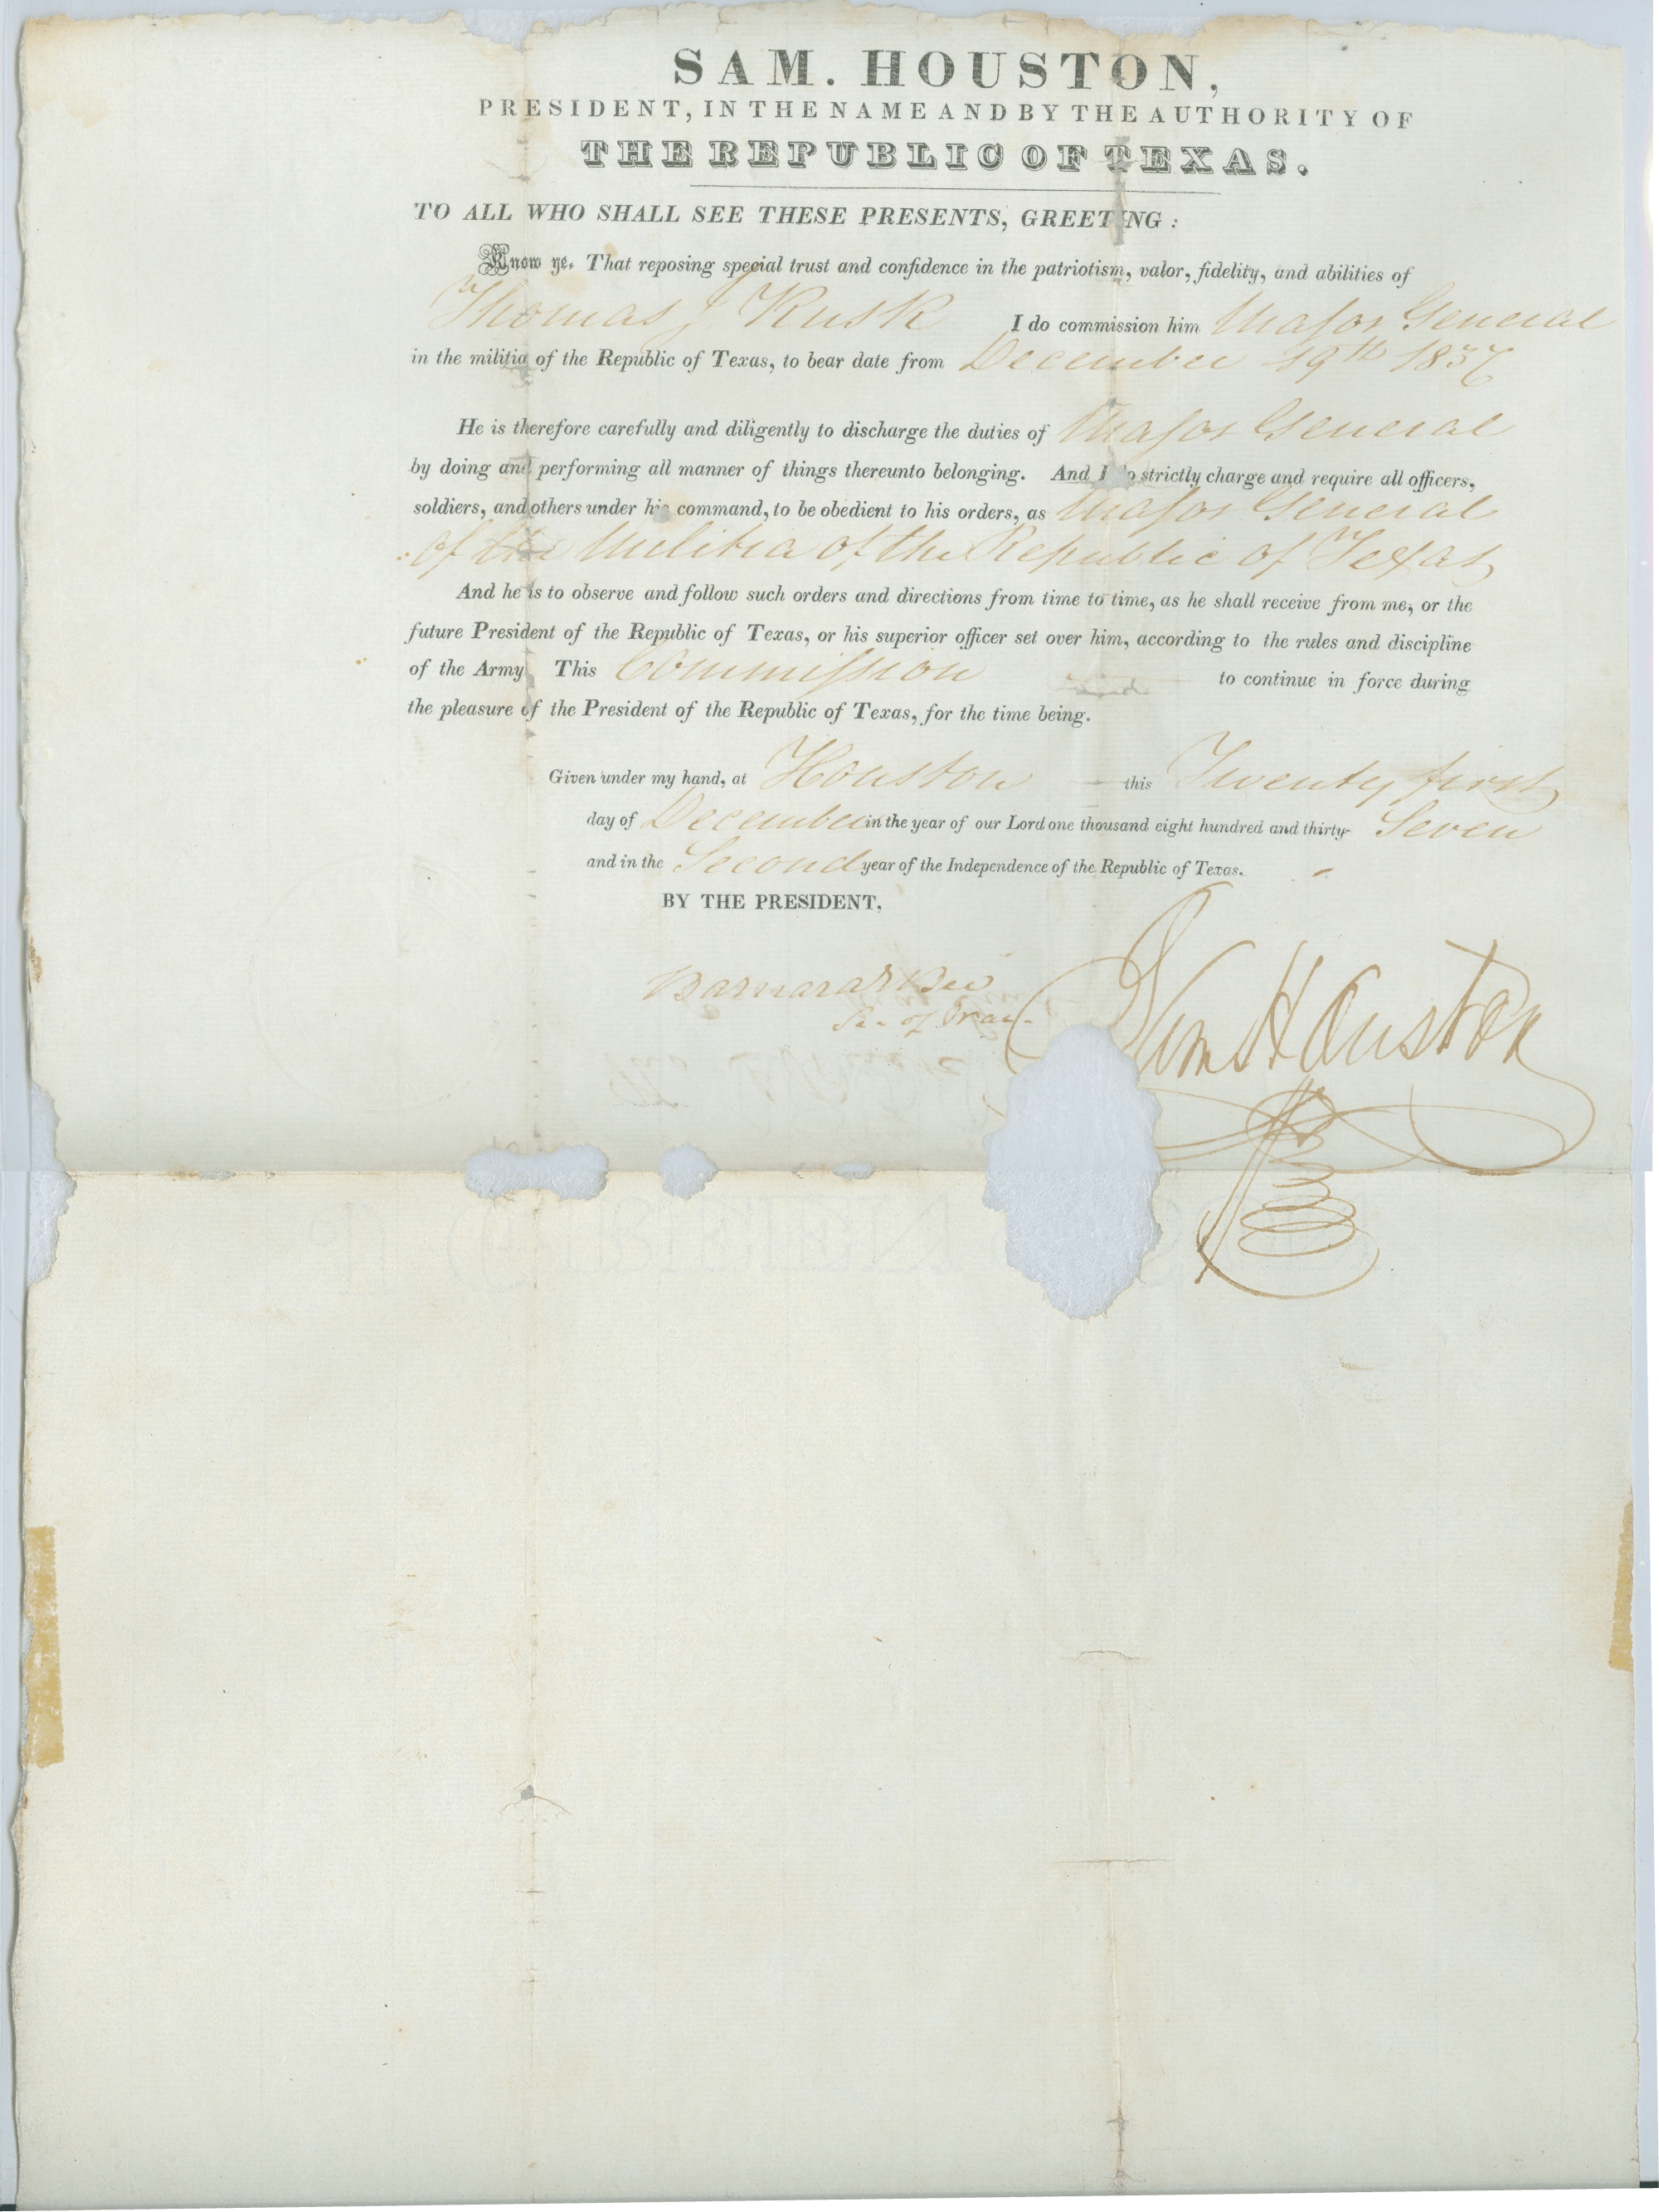 SAM. HOUSTON,
PRESIDENT, IN THE NAME AND BY THE AUTHORITY OF
THE REPUBLIC OF TEXAS.
TO ALL WHO SHALL SEE THESE PRESENTS, GREETING :
Know ye. That reposing special trust and confidence in the patriotism, valor, fidelity, and abilities of
Thomas J Rusk I do commission him Major General
in the militia of the Republic of Texas, to bear date from December 19th 1837
He is therefore carefully and diligently to discharge the duties of Major General
by doing and performing all manner of things thereunto belonging. And I do strictly charge and require all officers,
soldiers, and others under his command, to be obedient to his orders, as Major General
of the Militia of the Republic of Texas
And he is to observe and follow such orders and directions from time to time, as he shall receive from me, or the
future President of the Republic of Texas, or his superior officer set over him, according to the rules and discipline
of the Army This Commission to continue in force during
the pleasure of the President of the Republic of Texas, for the time being.
Given under my hand, at Houston this Twenty first
day of December in the year of our Lord one thousand eight hundred and thirty- Seven
and in the Second year of the Independence of the Republic of Texas.
BY THE PRESIDENT,
Barnard E Bee
Sec. of War
Sam Houston